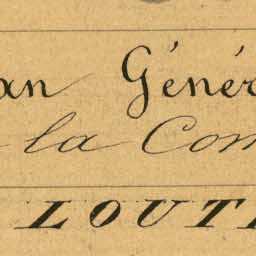 an Génér
la Com
LOUT